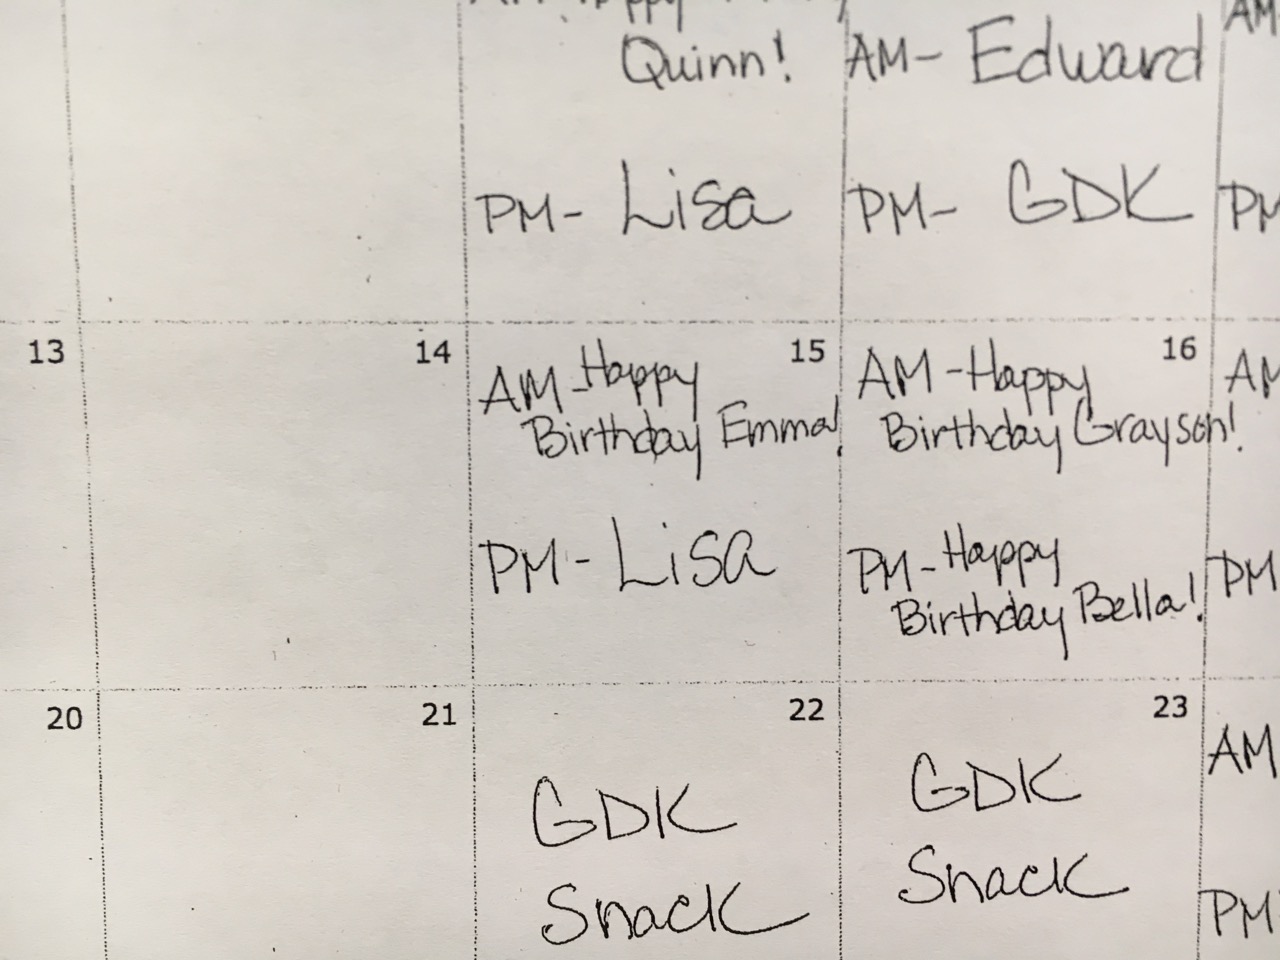 Quinn!
AM- Edward
AM
PM- Lisa
PM- GDK
PM
13
14
15
16
AM-Happy
Birthday Emma!
AM-Happy
Birthday Grayson!
AM
PM- Lisa
PM-Happy
Birthday Bella!
PM
20
21
22
23
GDK
Snack
GDK
Snack
AM
PM